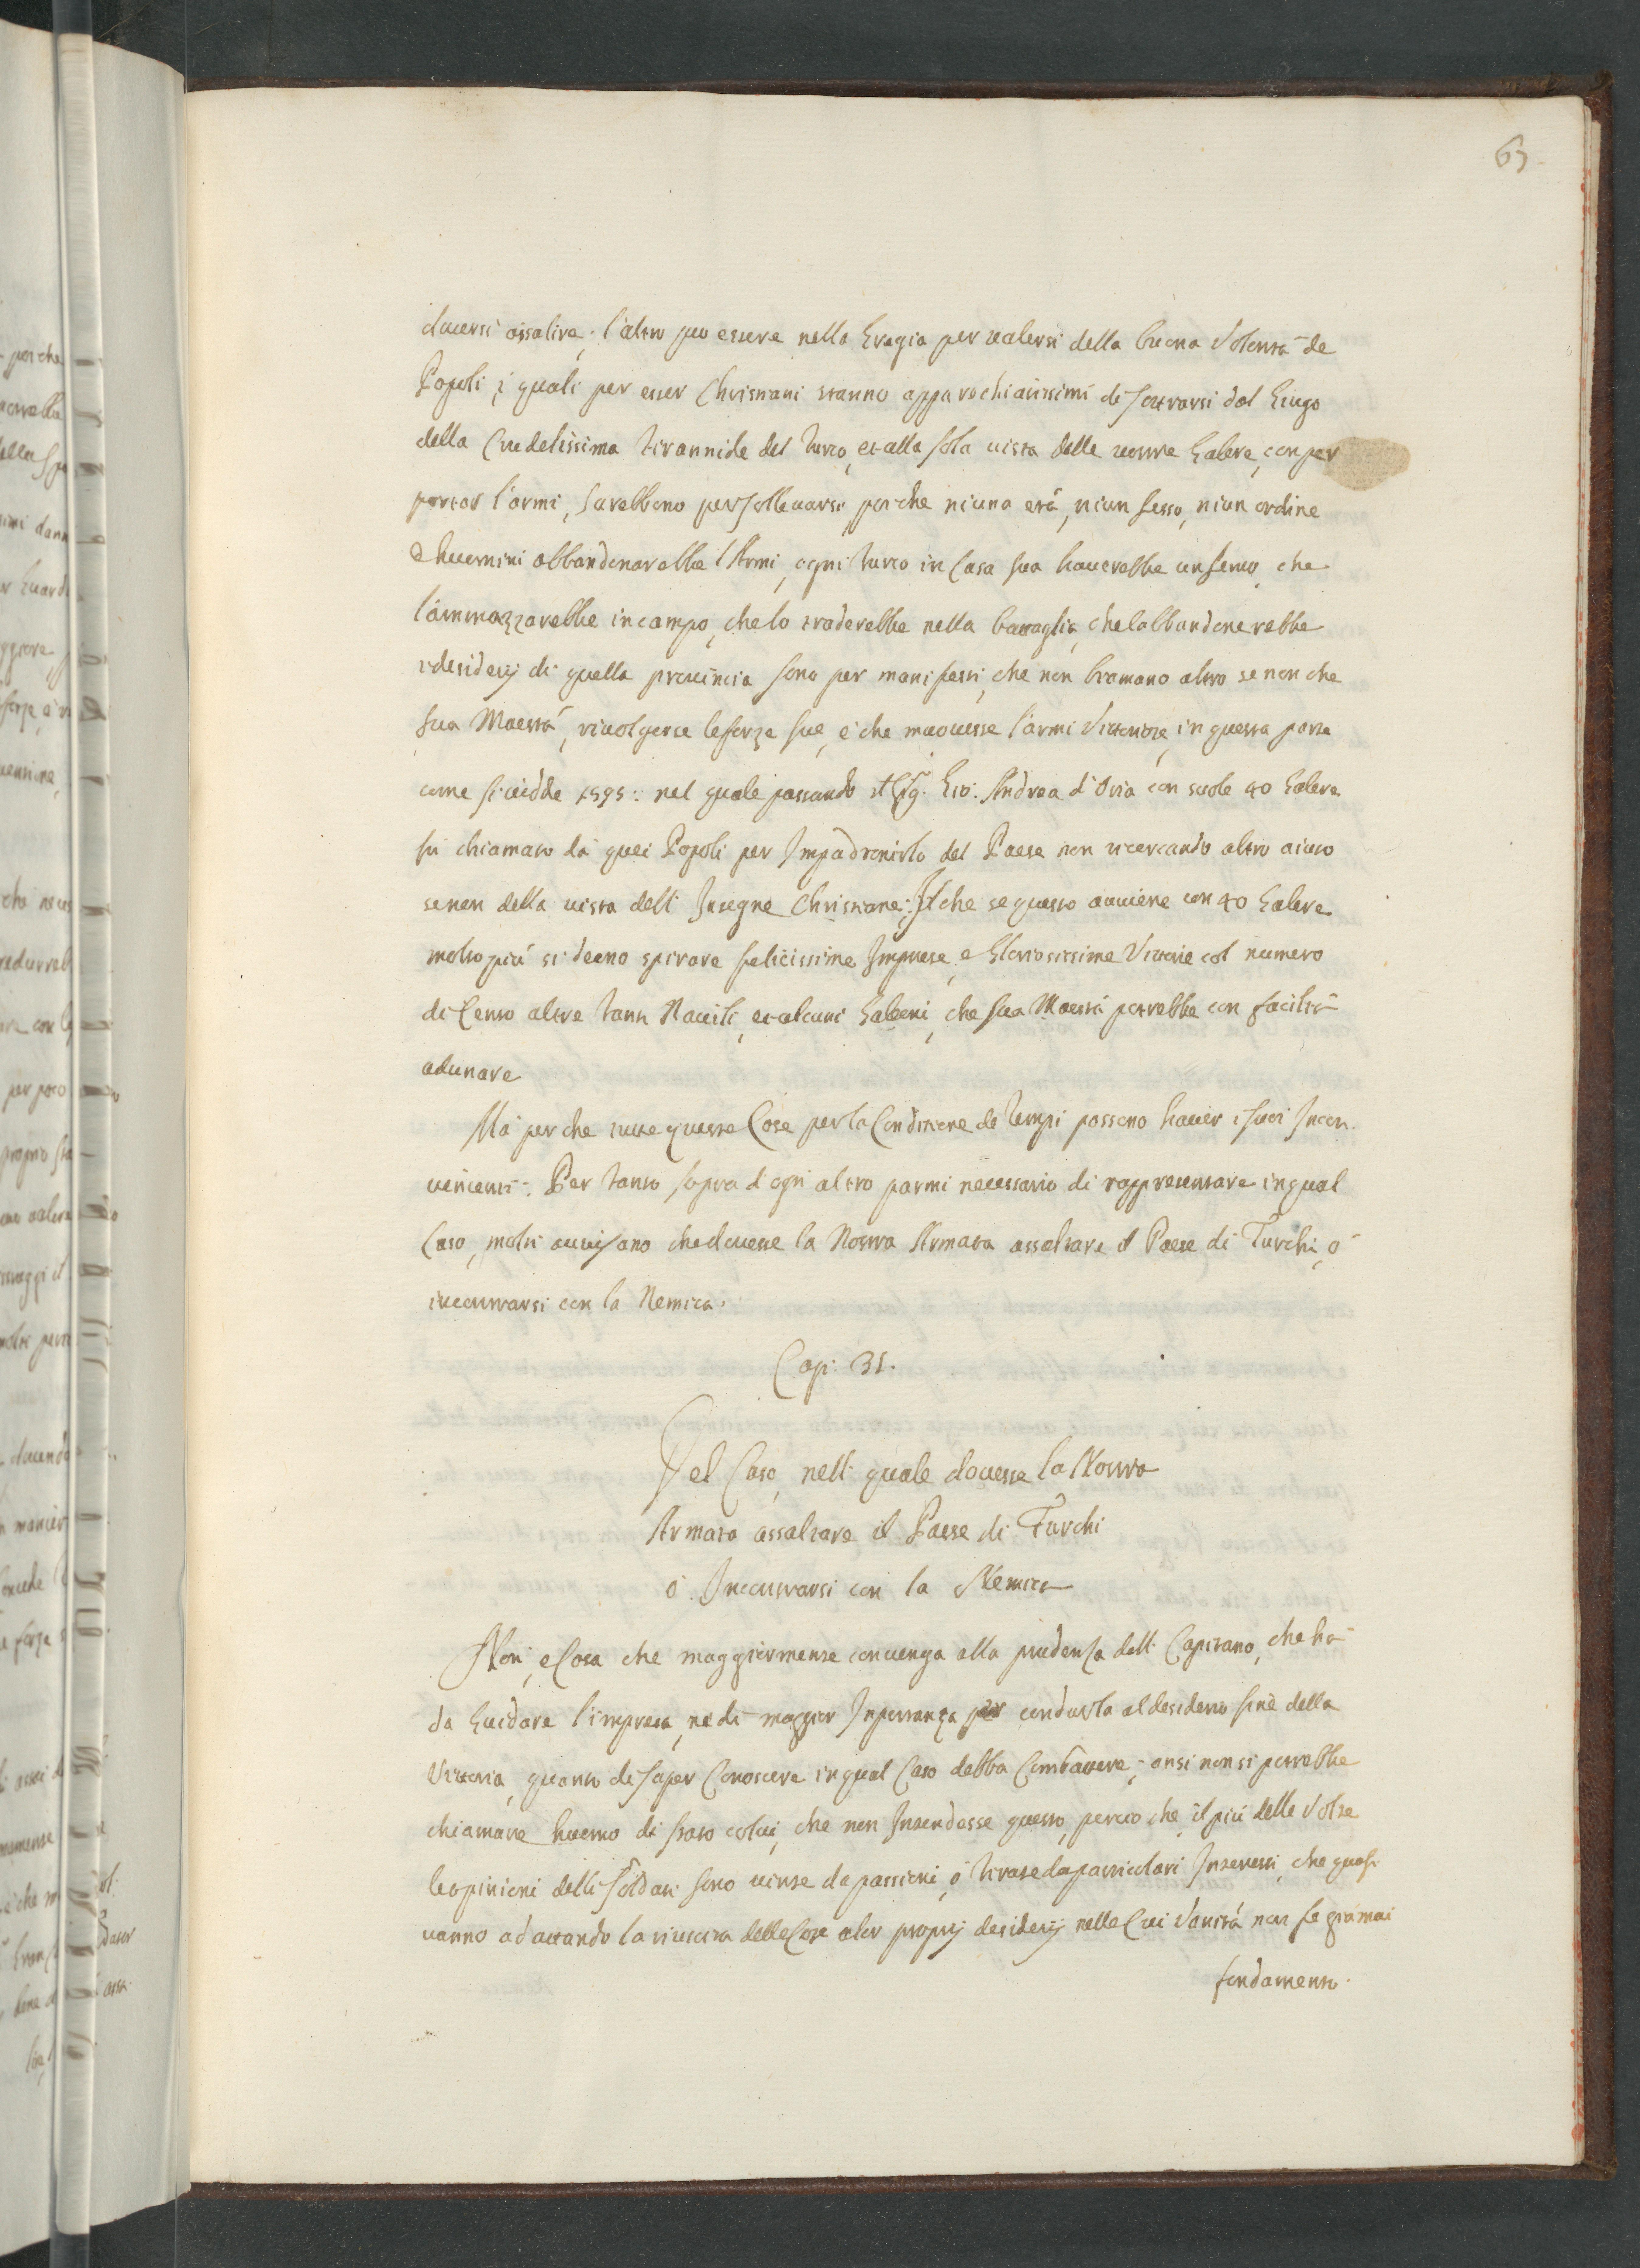 63
douersi assalire, l'altro puo essere nella Gregia per ualersi della buona Volontà de
Popoli, i quali per esser Christiani stanno apparechiatissimi di sottrarsi dal Giugo
della Crudelissima tirannide del turco, et alla sola uista delle uostre Galere, con per
portar l'armi, sarebbono per solleuarsi perche niuna età, niun sesso, niun ordine
d'huomini abbandonarebbe l'Armi, ogni turco in Casa sua hauerebbe un seruo, che
l'ammazzarebbe in campo, che lo traderebbe nella battaglia, che labbandonerebbe
i desiderij di quella prouincia sono per manifesti, che non bramano altro se non che
sua Maestà, riuolgersse le forze sue, e che mouesse l'armi Vittoriose, in questa parte
come si uidde 1595: nel quale passando il Sig. Gio: Andrea d'Oria con suole 40 Galere
fù chiamato da quei Popoli per Impadronirlo del Paese non ricercando altro aiuto
se non della uista delli Insegne Christiane: Il che se questo auuiene con 40 Galere
molto più si deeno spirare felicissime Imprese, e Gloriosissime Vittorie col numero
di Cento altre tanti Nauili, et alcuni Galeoni, che sua Maestà potrebbe con facilità
adunare
Mà perche tutte queste Cose per la Conditione de tempi possono hauer i suoi Incon-
uenienti: Per tanto sopra d'ogni altro parmi necessario di rappresentare in qual
Caso, molti auuisano che douesse la Nostra Armata assaltare il Paese di Turchi, ò
incontrarsi con la Nemica.
Cap: 31.
Del Caso, nelli quale douesse la Nostra
Armata assaltare il Paese di Turchi
ò Incontrarsi con la Nemica
Non, è Cosa che maggiormente conuenga alla prudenza delli Capitano, che hà
da Guidare l'impresa, ne di maggior Inportanza per condurla al desiderio fine della
Vittoria, quanto di saper Conoscere in qual Caso debba Combattere; ansi non si potrebbe
chiamare huomo di stato colui, che non Intendesse questo, percio che, il più delle Volte
le opinioni delli soldati sono uinte da passioni, ò tirate da particolari Interessi, che quasi
uanno adattando la riuscita delle Cose a lor proprij desiderij nella Cui Vanità non fe giàmai
fondamento.